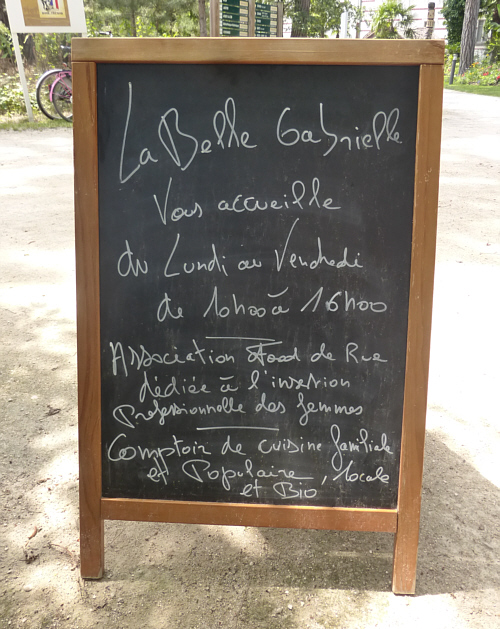 La Belle Gabrielle
Vous accueille
du Lundi au Vendredi
de 10h00 à 16h00
Association Food de Rue
dédiée à l'insertion
Professionnelle des femmes
Comptoir de cuisine familiale
et Populaire, locale
et Bio